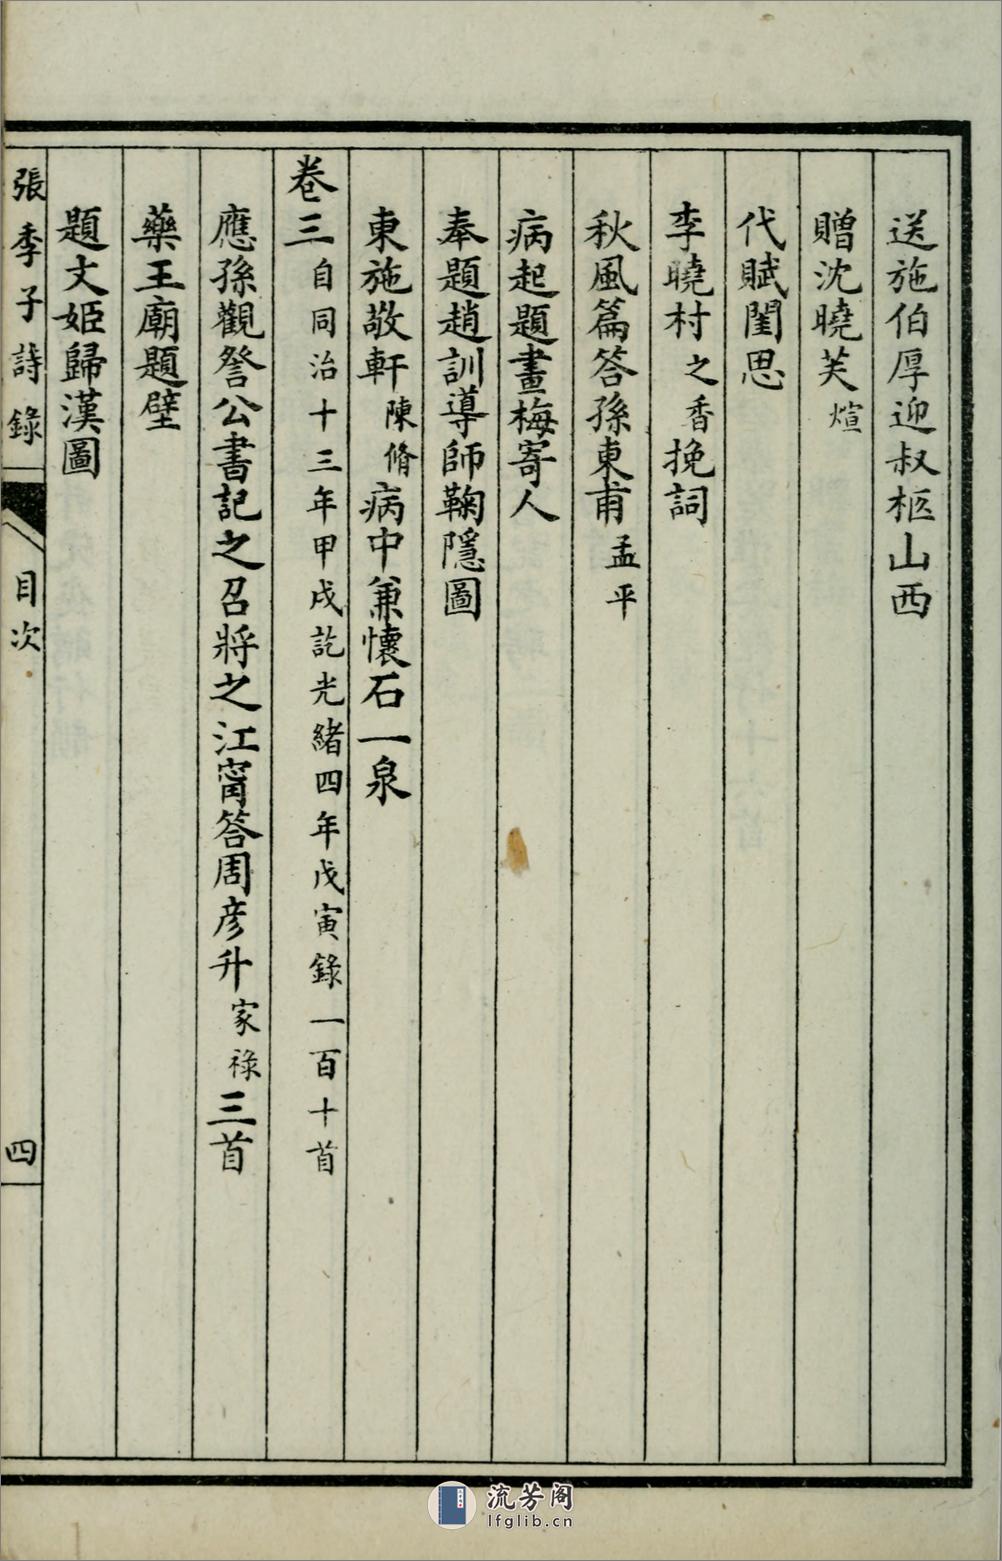 送施伯厚迎叔柩山西
贈沈曉芙煊
代賦閨思
李曉村之香挽詞
秋風篇答孫東甫孟平
病起題畫梅寄人
奉題趙訓導師鞠隱圖
東施敬軒陳脩病中兼懷石一泉
卷三自同治十三年甲戌訖光緒四年戊寅錄一百十首
應孫觀詧公書記之召將之江甯答周彥升家祿三首
藥王廟題壁
題文姬歸漢圖
張季子詩錄 目次 四
流芳阁
lfglib.cn